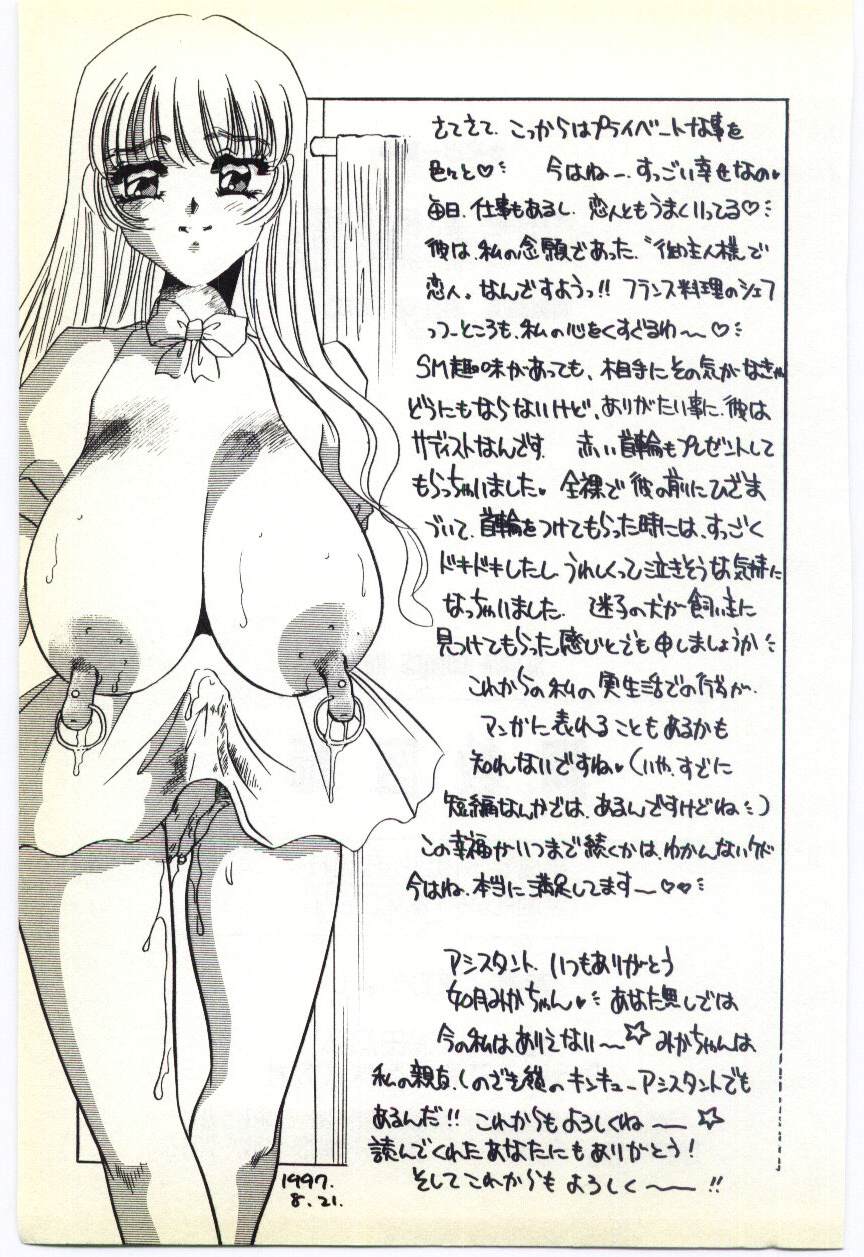 さてさて、こっからはプライベートな事を
色々と♡ 今はねー、すっごい幸せなの♥
毎日、仕事もあるし、恋人ともうまくいってる♡
彼は、私の念願であった、"御主人様"で
恋人。なんですようっ!! フランス料理のシェフ
っつーところも、私の心をくすぐるわ〜♡
SM趣味があっても、相手にその気がなきゃ
どうにもならないけど、ありがたい事に、彼は
サディストなんです。 赤い首輪もプレゼントして
もらっちゃいました♥ 全裸で彼の前にひざま
づいて、首輪をつけてもらった時には、すっごく
ドキドキしたし、うれしくって泣きそうな気持に
なっちゃいました。 迷子の犬が飼い主に
見つけてもらった感じとでも申しましょうか
これからの私の実生活での行為が、
マンガに表れることもあるかも
知れないですね♥(いや、すでに
短編なんかでは、あるんですけどね)
この幸福がいつまで続くかは、わかんないケド
今はね、本当に満足してます〜♡♡
アシスタント、いつもありがとう
如月みかちゃん♥ あなた無しでは
今の私はありえない〜☆ みかちゃんは
私の親友、しのざき嶺のキンキューアシスタントでも
あるんだ!! これからもよろしくね〜☆
読んでくれたあなたにもありがとう!
そしてこれからもよろしく〜!!
1997.
8.21.